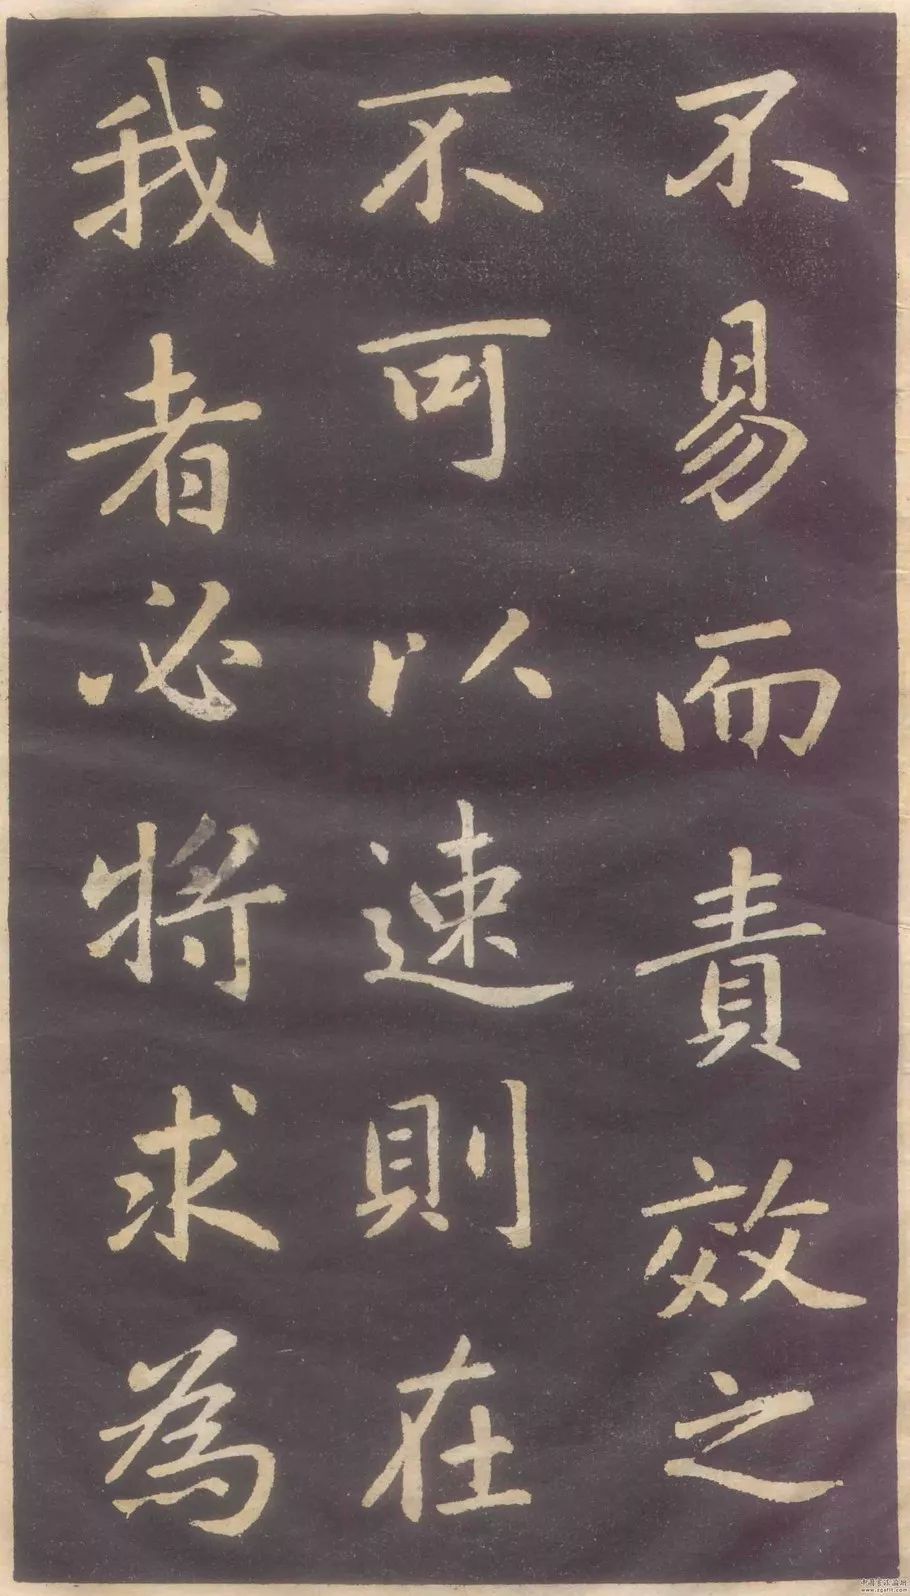 不易而責效之
不可以速則在
我者必將求為